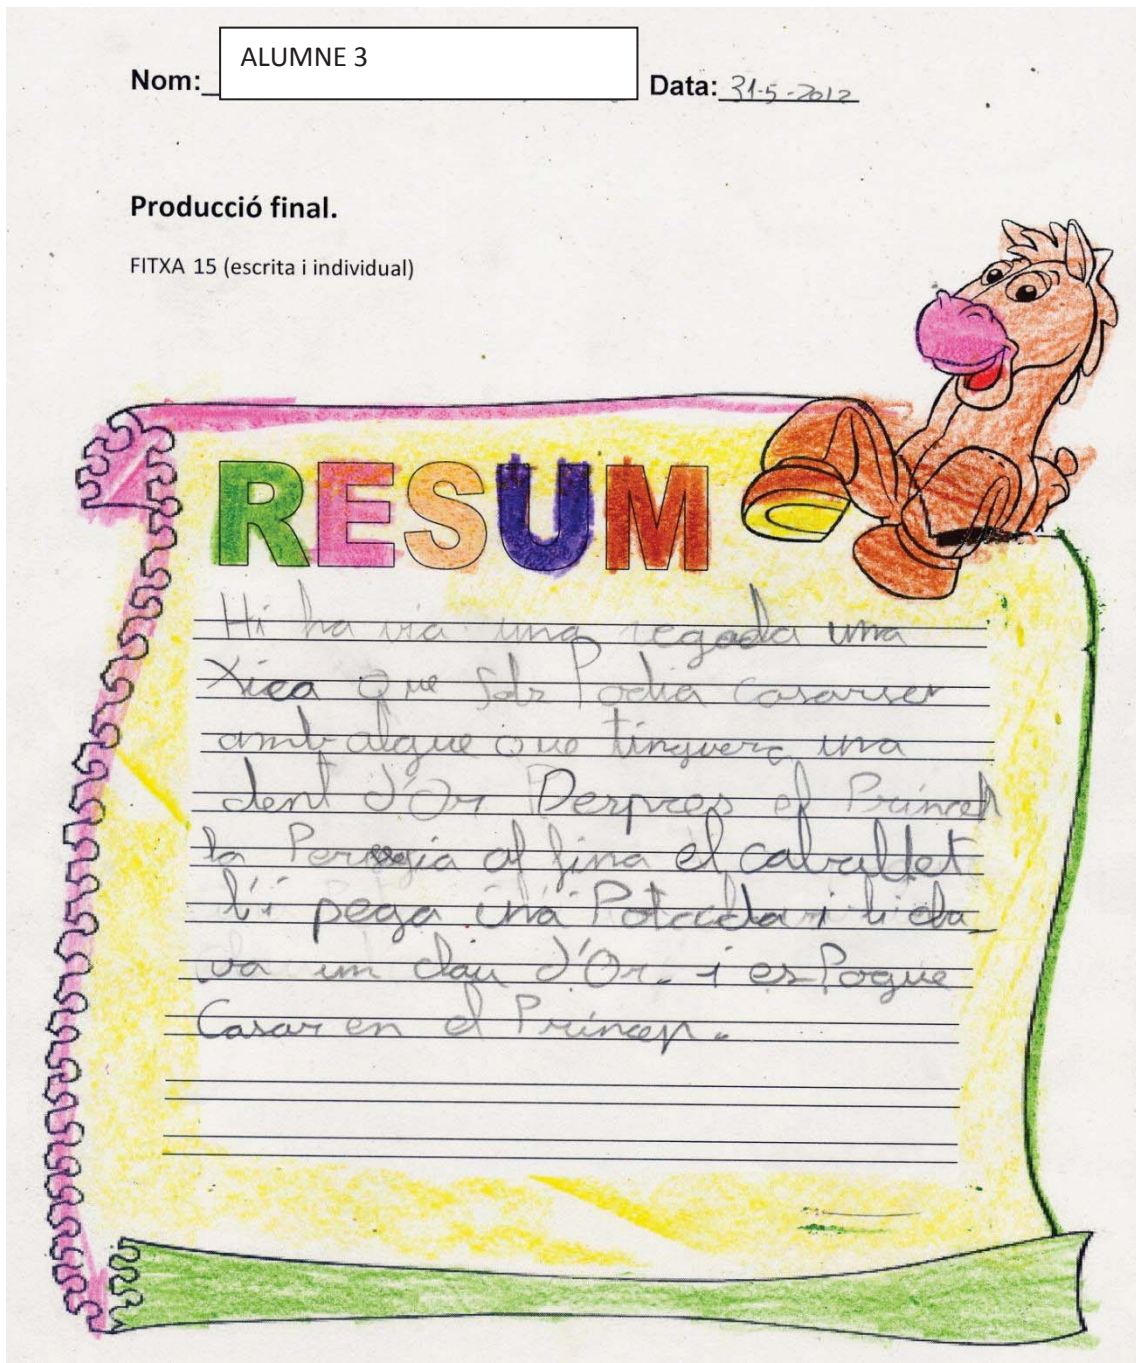 ALUMNE 3
Nom:_ Data: 31-5-2012
Producció final.
FITXA 15 (escrita i individual)
RESUM
Hi ha via una regada una
Xica Que Sols Podia casarser
amb algue que tinguera una
dent d'Or Derpres el Princep
la Persegia al fina el cabaldet
l'i pega una Potada i li cla_
va un clau d'Or. i es Pogue
Casar en el Princep.